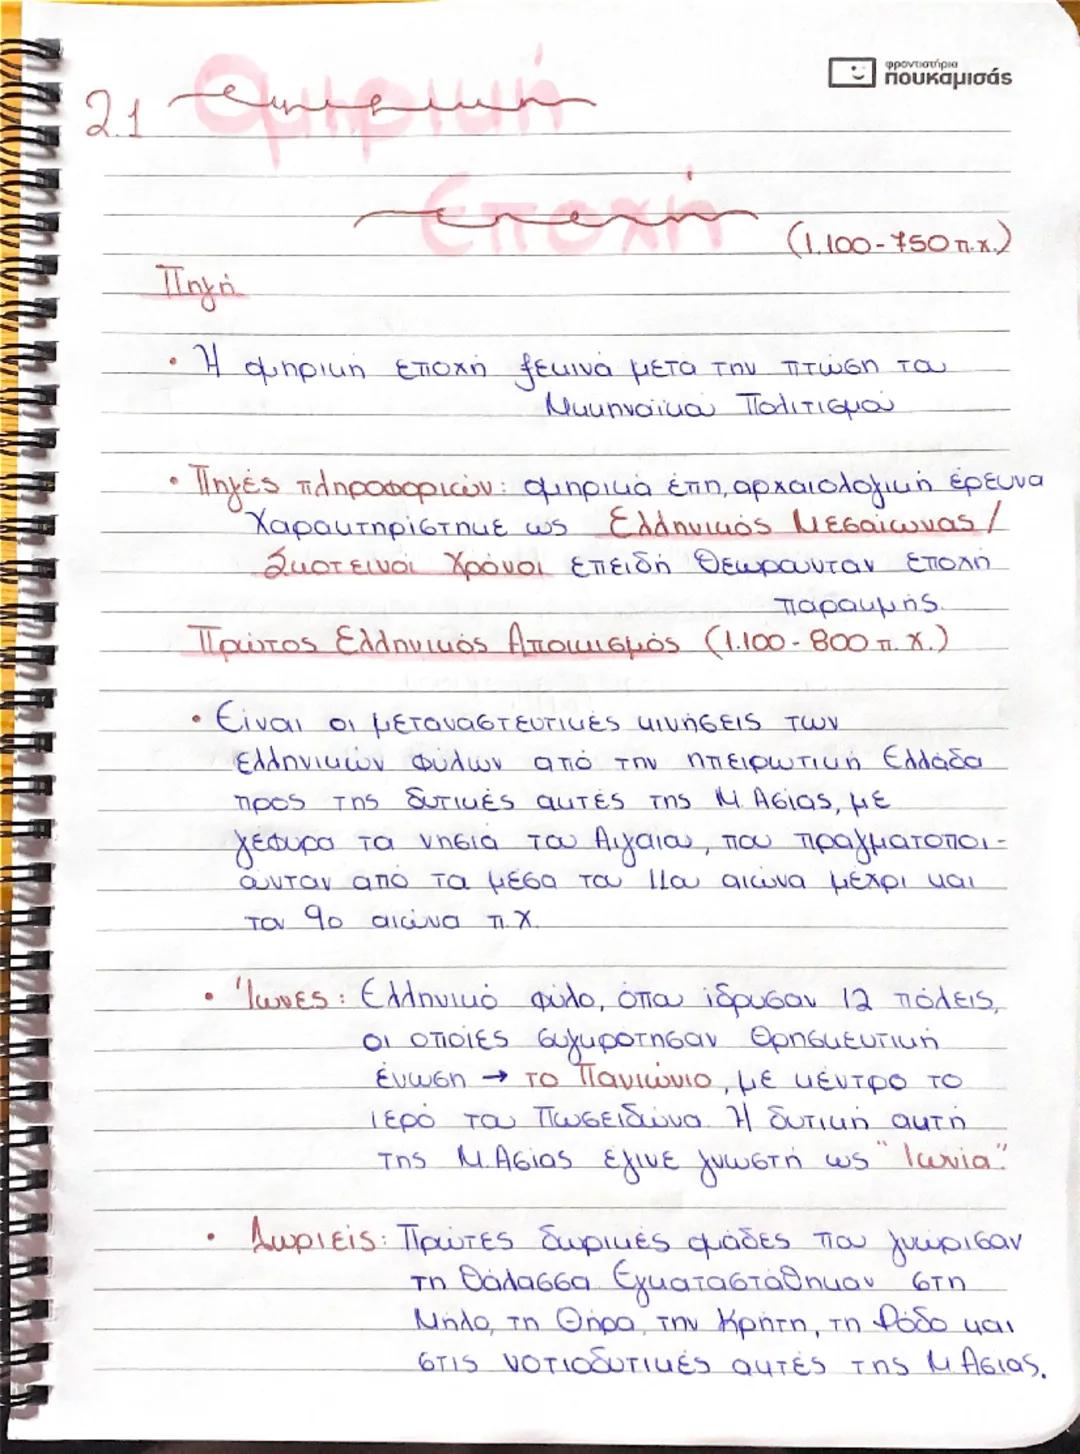 φροντιστήρια
πουκαμισάς
2.1 Ομηρική
Εποχή
(1.100-750 π.χ.)
Πηγή
• Η ομηρική εποχή ξεκινά μετά την πτώση του
Μυκηναϊκού Πολιτισμού
• Πηγές πληροφοριών: ομηρικά έπη, αρχαιολογική έρευνα
Χαρακτηρίστηκε ως Ελληνικός Μεσαίωνας /
Σκοτεινοί Χρόνοι επειδή θεωρούνταν εποχή
παρακμής.
Πρώτος Ελληνικός Αποικισμός (1.100-800 π.Χ.)
• Είναι οι μεταναστευτικές κινήσεις των
ελληνικών φύλων από την ηπειρωτική Ελλάδα
προς της δυτικές ακτές της Μ. Ασίας, με
γέφυρα τα νησιά του Αιγαίου, που πραγματοποι-
ούνταν από τα μέσα του 11ου αιώνα μέχρι και
τον 9ο αιώνα π.Χ.
• Ίωνες: Ελληνικό φύλο, όπου ίδρυσαν 12 πόλεις,
οι οποίες συγκρότησαν θρησκευτική
ένωση → το Πανιώνιο, με κέντρο το
ιερό του Ποσειδώνα. Η δυτική ακτή
της Μ. Ασίας έγινε γνωστή ως "Ιωνία".
• Δωριείς: Πρώτες δωρικές ομάδες που γνώρισαν
τη θάλασσα. Εγκαταστάθηκαν στη
Μήλο, τη Θήρα, την Κρήτη, τη Ρόδο και
στις νοτιοδυτικές ακτές της Μ. Ασίας.